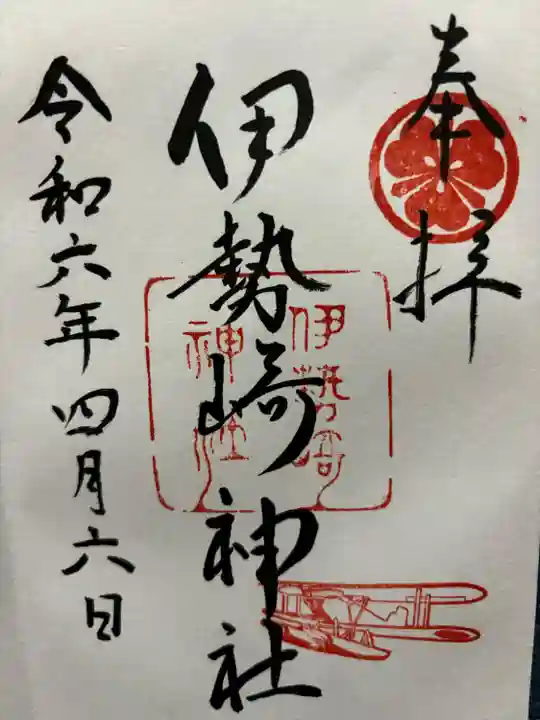 奉拝
伊勢崎神社
伊勢崎
神社
令和六年四月六日